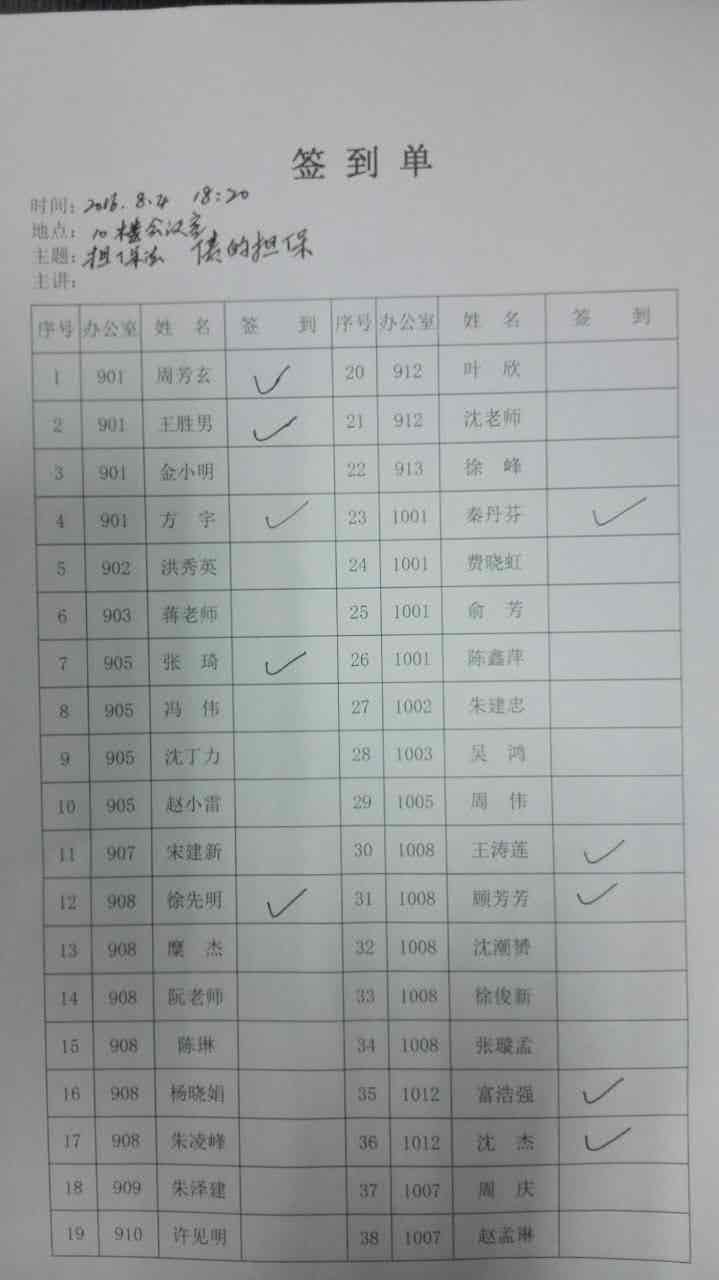 签到单
时间：2016.8.4 18:20
地点：10楼会议室
主题：担保法 债的担保
主讲：
序号 办公室 姓名 签到 序号 办公室 姓名 签到
1 901 周芳玄 ✓ 20 912 叶欣
2 901 王胜男 ✓ 21 912 沈老师
3 901 金小明 22 913 徐峰
4 901 方宇 ✓ 23 1001 秦丹芬 ✓
5 902 洪秀英 24 1001 费晓虹
6 903 蒋老师 25 1001 俞芳
7 905 张琦 ✓ 26 1001 陈鑫萍
8 905 冯伟 27 1002 朱建忠
9 905 沈丁力 28 1003 吴鸿
10 905 赵小雷 29 1005 周伟
11 907 宋建新 30 1008 王涛莲 ✓
12 908 徐先明 ✓ 31 1008 顾芳芳 ✓
13 908 糜杰 32 1008 沈潮赟
14 908 阮老师 33 1008 徐俊新
15 908 陈琳 34 1008 张璇孟
16 908 杨晓娟 35 1012 富浩强 ✓
17 908 朱凌峰 36 1012 沈杰 ✓
18 909 朱泽建 37 1007 周庆
19 910 许见明 38 1007 赵孟琳